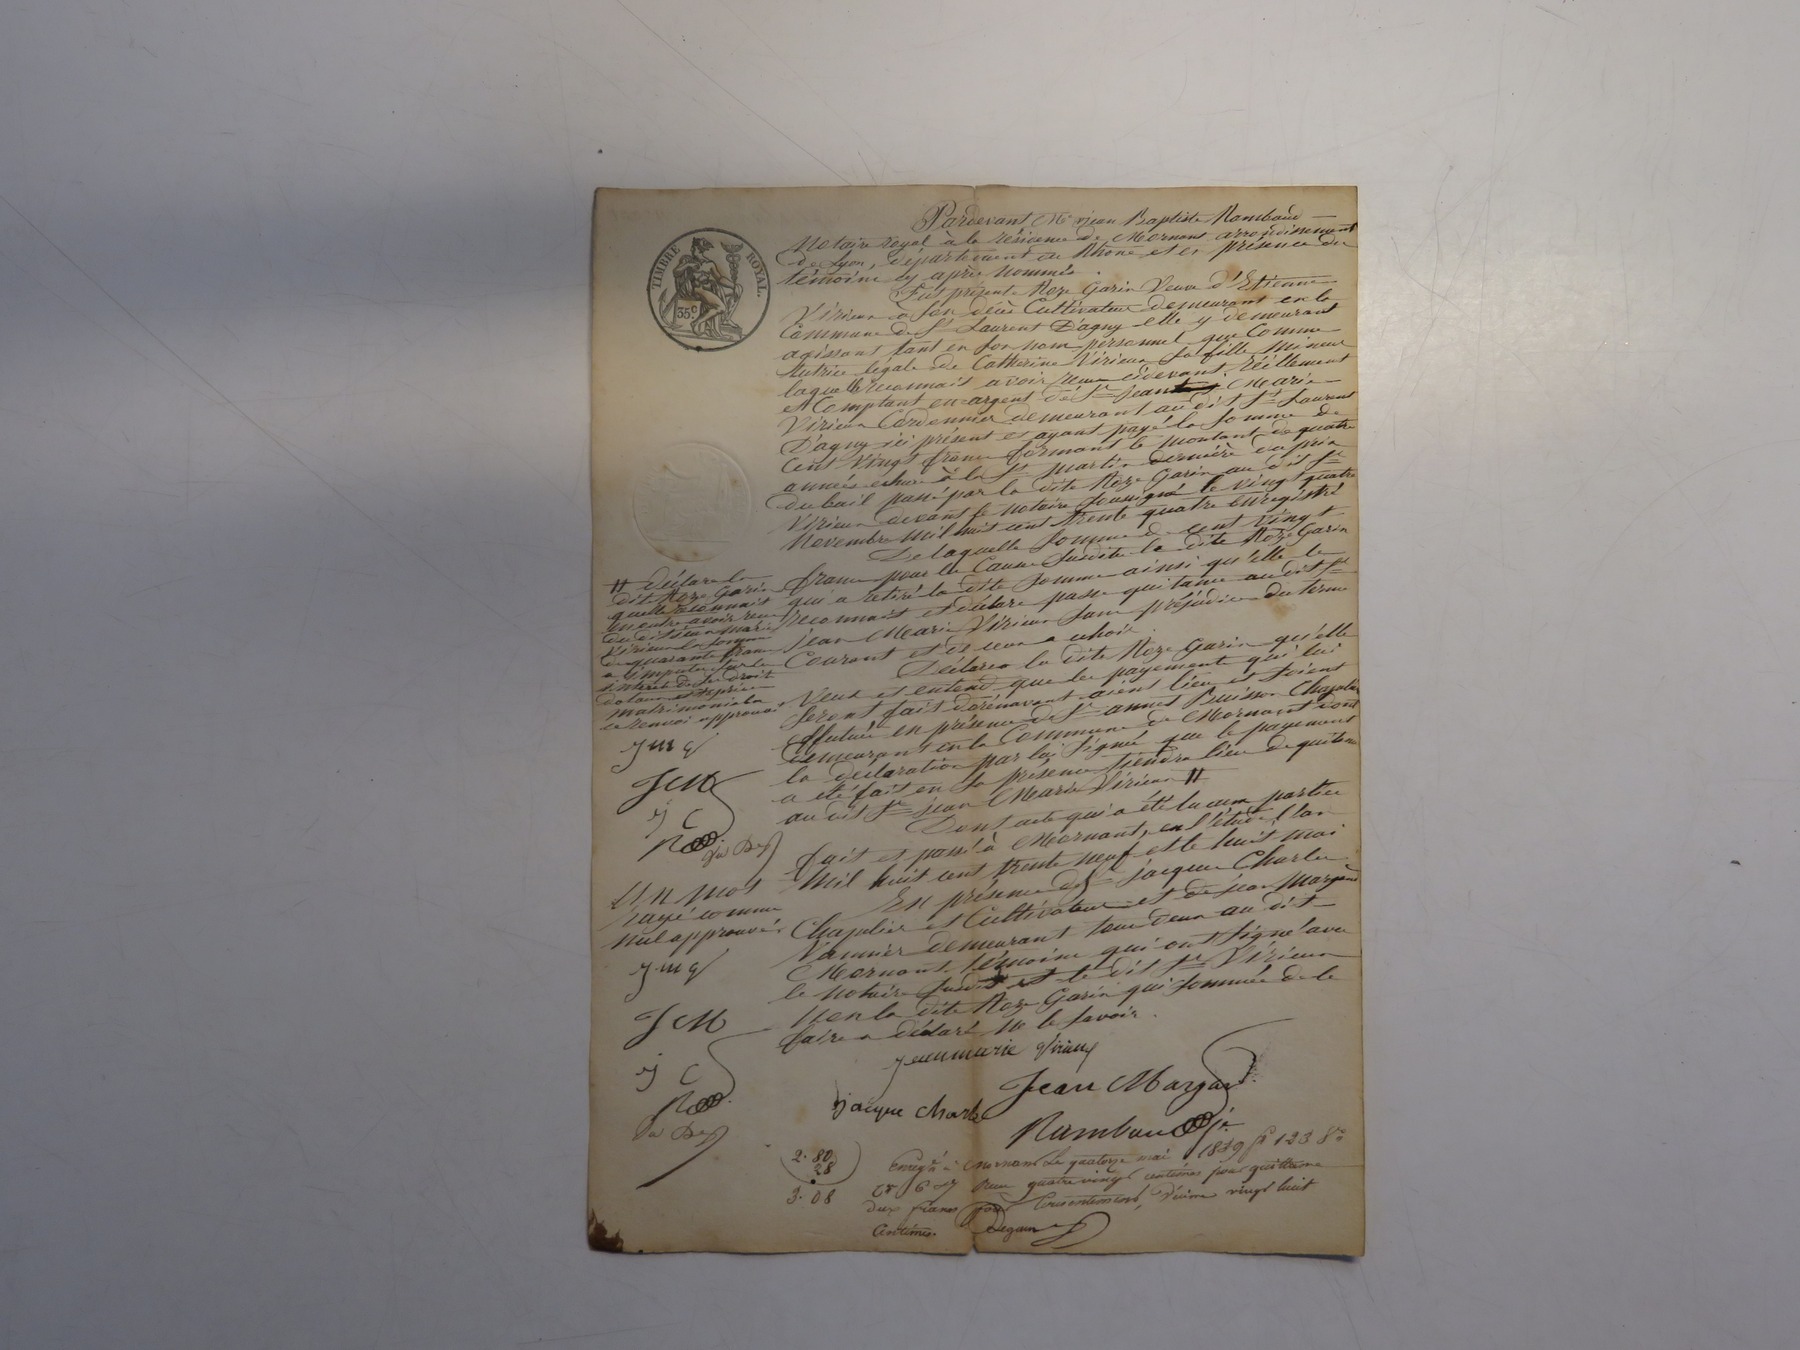 TIMBRE ROYAL.
35c
Pardevant Me jean Baptiste Rambaud
Notaire royal à la résidence de Mornant arrondissement
de Lyon, département du Rhône et en présence des
témoins cy après nommés.
Fut présente Roze Garin Veuve d'Etienne
Virieux a son décès Cultivateur demeurant en la
Commune de St Laurent D'agny elle y demeurant
agissant tant en son nom personnel que Comme
tutrice légale de Catherine Virieux sa fille mineure
laquelle reconnait avoir reçu cidevant, réellement
et Comptant en argent de Sr jean Marie
Virieux Cordonnier demeurant au dit St Laurent
D'agny ici présent et ayant payé la somme de
Cent Vingt francs formant le montant de quatre
années echues à la St Martin dernière du prix
du bail passé par la dite Roze Garin au dit Sr
Virieux devant le notaire soussigné le vingt quatre
Novembre Mil huit cent trente quatre enregistré
De laquelle Somme de cent Vingt
francs pour les Causes susdites la dite Roze Garin
qui a retiré la dite somme ainsi qu'elle le
reconnait et déclare passe quitance au dit Sr
jean Marie Virieux sans préjudice du terme
Courant et de ceux a echoir.
Déclare la dite Roze Garin qu'elle
Veut et entend que les payements qui lui
seront fait dorénavant aient lieu et soient
effectués en présence de Sr Buisson Chapelier
demeurant en la Commune de Mornant dont
la déclaration par lui signée que le payement
a été fait en sa présence tiendra lieu de quitance
au dit Sr jean Marie Virieux #
Dont acte qui a été lu aux parties
fait et passé à Mornant, en l'étude, l'an
Mil huit cent trente neuf et le huit mai
En présence de jacque Charles
Chapelier et Cultivateur et de jean
Vannier demeurant tous deux au dit
Mornant témoins qui ont signé avec
le notaire susdit et le dit Sr Virieux
Non la dite Roze Garin qui sommée de le
faire a déclaré ne le savoir.
# déclare la
dite Roze Garin
quelle reconnait
en outre avoir reçu
du dit jean marie
Virieux la somme
de quarante francs
a imputer sur les
interets de ses droits
matrimoniaux
ce renvoi approuvé
JCM
j C
Un mot
rayé comme
nul approuvé.
JCM
j C
jeanmarie Virieux
Jean
jacque Charle
Rambaud
2. 80
28
3. 08
Enregé à Mornant Le quatorze mai 1839 fo 123 Vo
Cs 6 et 7 Reçu quatre vingt centimes pour quittance
deux francs pour Consentement, Décime vingt huit
Centimes.